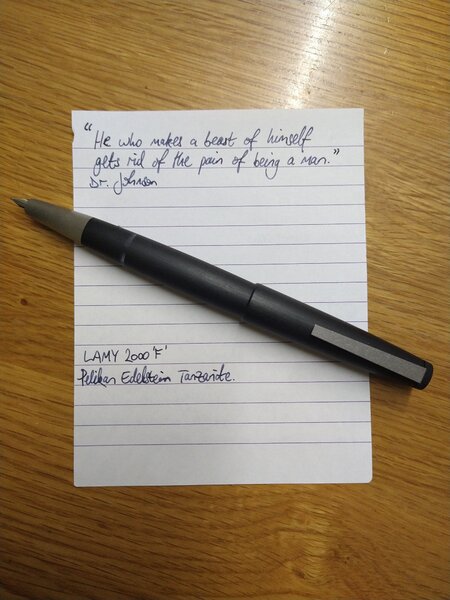 "He who makes a beast of himself
gets rid of the pain of being a man."
Dr. Johnson
LAMY 2000 'F'
Pelikan Edelstein Tanzanite.